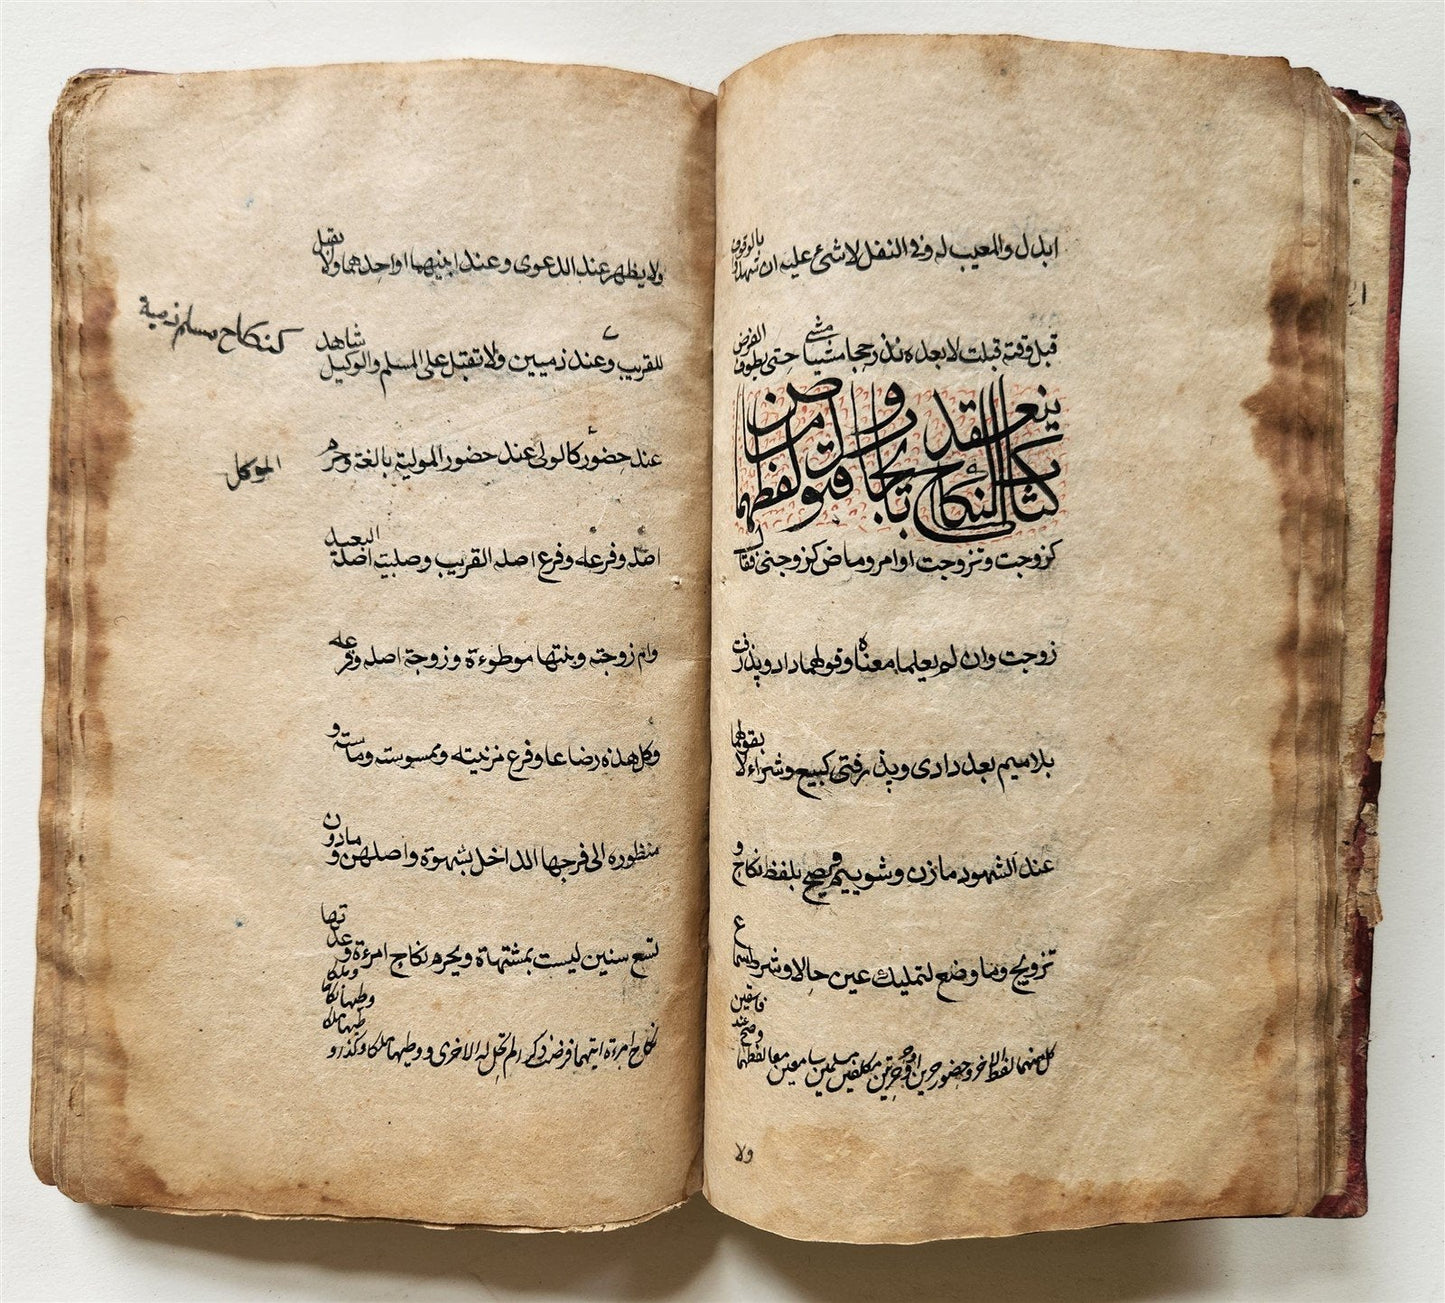 ابدل والمعيب له وفى النفل لا شئ عليه ان شهدوا بالوقوف
قبل وقته قبلت لا بعده نذر حجا مشيا مشى حتى يطوف الفرض
كتاب النكاح ينعقد بايجاب وقبول لفظهما ماض
كزوجت وتزوجت او امر وماض كزوجنى فقال
زوجت وان لم يعلما معناه وقولهما داد وپذرفت
بلا ميم بعد دادى وپذرفتى كبيع وشراء لا بقولهما
عند الشهود ما زن وشوييم ويصح بلفظ نكاح و
تزويج وما وضع لتمليك عين حالا وشرط سماع
كل منهما لفظ الاخر وحضور حرين او حر وحرتين مكلفين مسلمين سامعين معا لفظهما وصح عند فاسقين
ولا
ولا يظهر عند الدعوى وعند ابنيهما او احدهما ولا يقبل
للقريب وعند ذميين ولا تقبل على المسلم والوكيل شاهد
كنكاح مسلم ذمية
عند حضور كالولى عند حضور المولية بالغة وحرم
الموكل
اصله وفرعه وفرع اصله القريب وصلبية اصله البعيد
وام زوجته وبنتها موطوءة وزوجة اصله وفرعه
وكل هذه رضاعا وفرع مزنيته وممسوسته وماسته و
منظوره الى فرجها الداخل بشهوة واصلهن وما دون
تسع سنين ليست بمشتهاة ويحرم نكاح امرءة وعدتها
نكاح امرءة ايتهما فرضت ذكرا لم تحل له الاخرى ووطيها ملكا وكذا